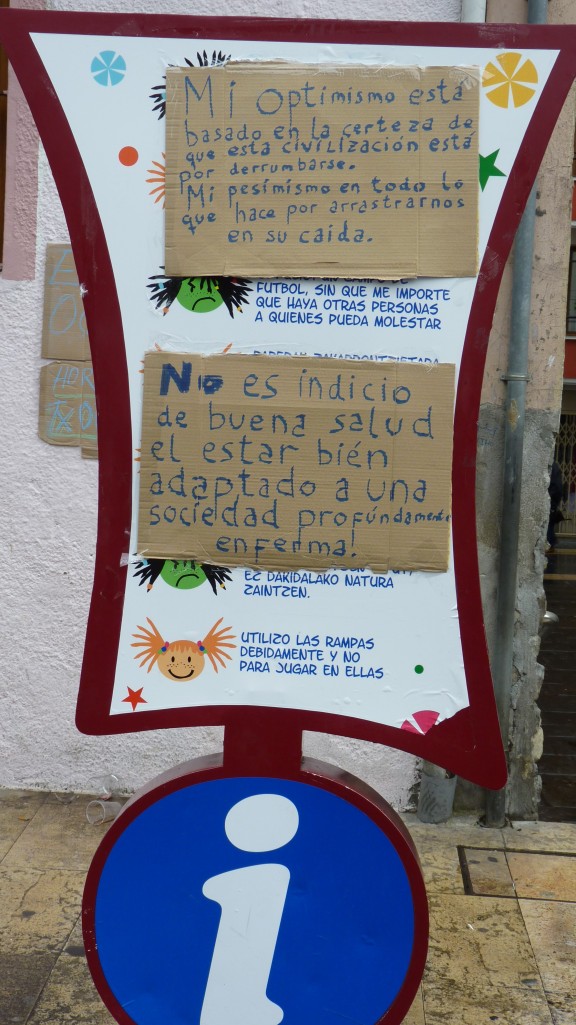 Mi optimismo está
basado en la certeza de
que esta civilización está
por derrumbarse.
Mi pesimismo en todo lo
que hace por arrastrarnos
en su caida.
FUTBOL, SIN QUE ME IMPORTE
QUE HAYA OTRAS PERSONAS
A QUIENES PUEDA MOLESTAR
No es indicio
de buena salud
el estar bién
adaptado a una
sociedad profúndamente
enferma!
EZ DAKIDALAKO NATURA
ZAINTZEN.
UTILIZO LAS RAMPAS
DEBIDAMENTE Y NO
PARA JUGAR EN ELLAS
i